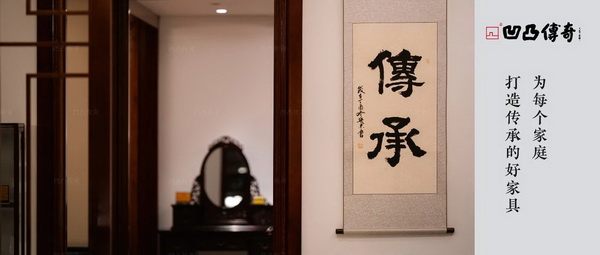 傳承
凹凸傳奇
为每个家庭
打造传承的好家具